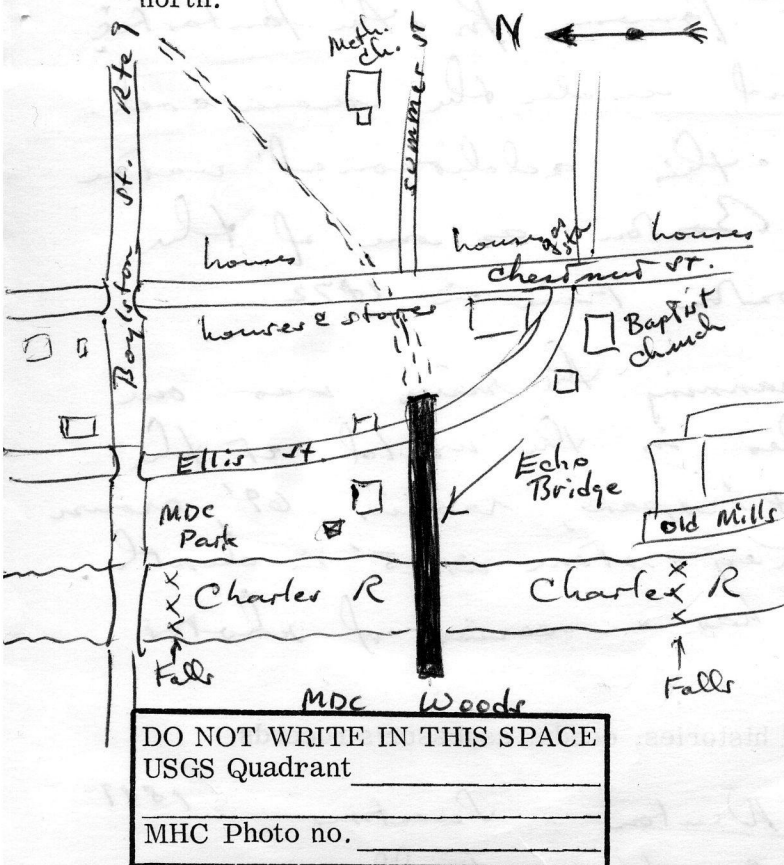 north.
N
Meth.
Ch.
Summer St
Boylston St. Rte 9
houses
houses
gas
sta
houses
Chestnut St.
houses & stores
Baptist
Church
Ellis St.
Echo
Bridge
MDC
Park
Old Mills
Charles R
Charles R
XXX
XXX
Falls
Falls
MDC Woods
DO NOT WRITE IN THIS SPACE
USGS Quadrant
MHC Photo no.